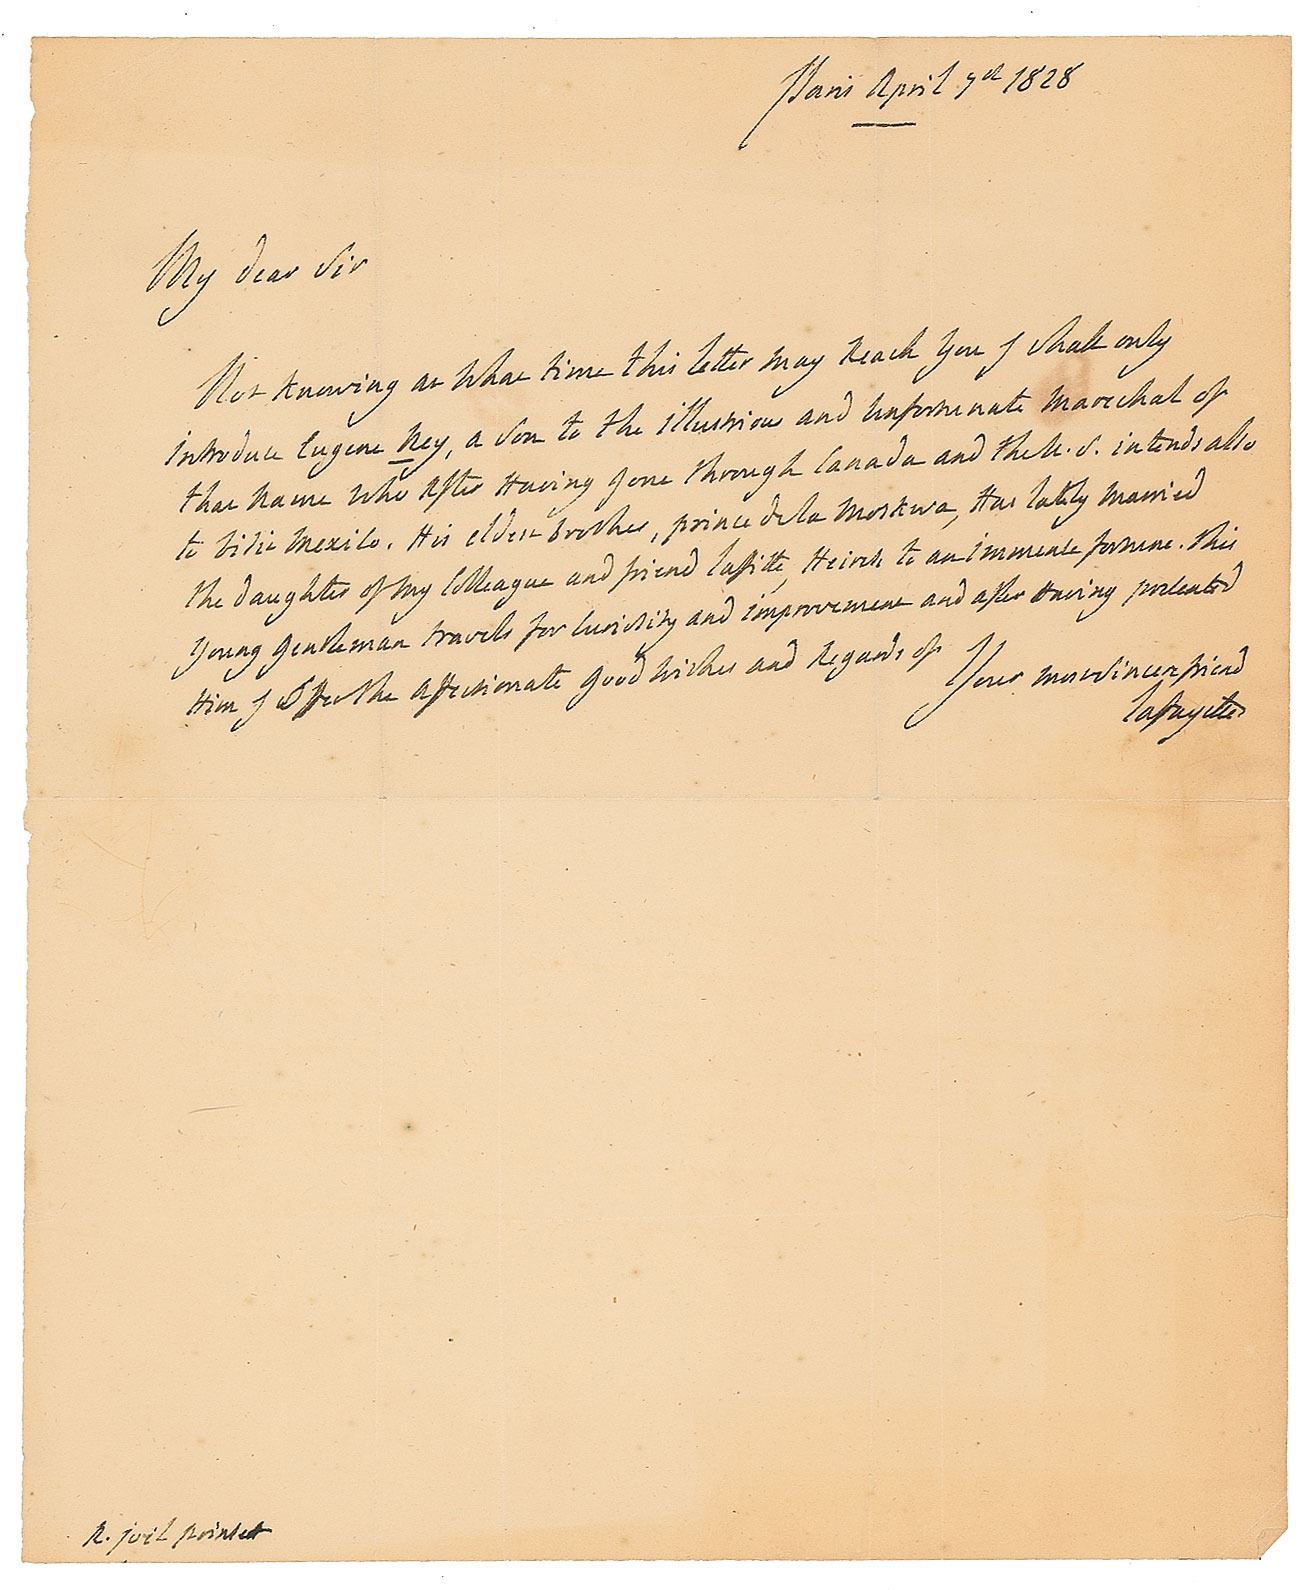 Paris April 7th 1828
My dear Sir
Not Knowing at What time this letter may Reach You I shall only
introduce Eugene Ney, a Son to the illustrious and Unfortunate Marechal of
that Name Who After Having gone through Canada and the U.S. intends also
to Visit Mexico. His eldest brother, prince de la Moskwa, Has lately Married
the daughter of My Colleague and friend Laffitte, Heiress to an immense fortune. This
Young gentleman travels for Curiosity and improvement and after Having presented
Him I Offer the Affectionate good Wishes and Regards of
Your most sincere friend
Lafayette
R. joel poinsett